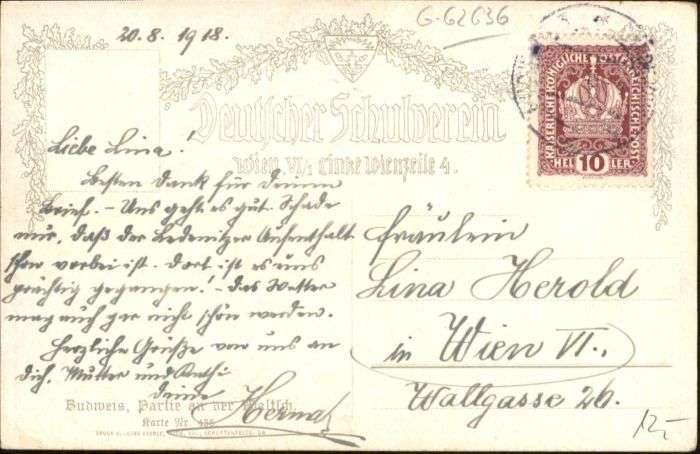 G-62636
20.8.1918.
KAISERLICHE KÖNIGLICHE ÖSTERREICHISCHE POST
HELLER
10
Deutscher Schulverein
Wien, VI/1 Linke Wienzeile 4.
Liebe Lina!
Besten Dank für Deinen
Brief. - Uns geht es gut. Schade
nur, daß der Ledenitzer Aufenthalt
schon vorbei ist. Dort ist es uns
prächtig gegangen! - Das Wetter
mag auch gar nicht schön werden.
Herzliche Grüße von uns an
Dich, Mutter und Kathi
Deine
Herma
Fräulein
Lina Herold
in Wien VI.,
Wallgasse 26.
Budweis, Partie an der Maltsch.
Karte Nr. 485
12,-